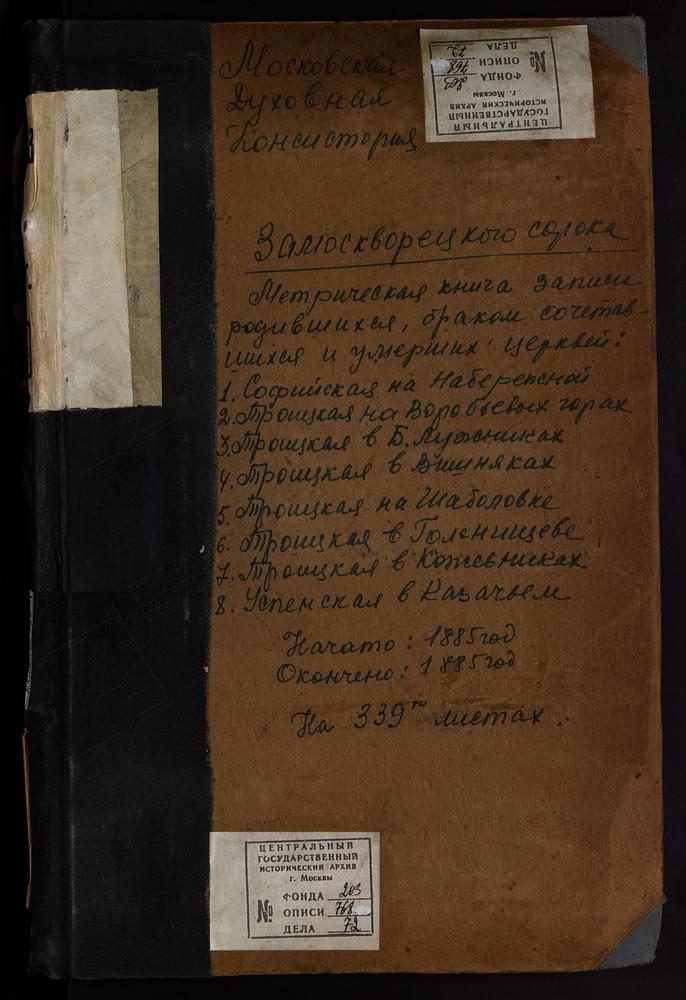 Московская
Духовная
Консистория
ЦЕНТРАЛЬНЫЙ
ГОСУДАРСТВЕННЫЙ
ИСТОРИЧЕСКИЙ АРХИВ
г. Москвы
№
ФОНДА 203
ОПИСИ 768
ДЕЛА 72
Замоскворецкого сорока
Метрическая книга записи
родившихся, браком сочетав-
шихся и умерших церквей:
1. Софийская на Набережной
2. Троицкая на Воробьевых горах
3. Троицкая в Б. Лужниках
4. Троицкая в Вишняках
5. Троицкая на Шаболовке
6. Троицкая в Голенищеве
7. Троицкая в Кожевниках
8. Успенская в Казачьем
Начато: 1885 год
Окончено: 1885 год
На 339ти листах.
ЦЕНТРАЛЬНЫЙ
ГОСУДАРСТВЕННЫЙ
ИСТОРИЧЕСКИЙ АРХИВ
г. Москвы
№
ФОНДА 203
ОПИСИ 768
ДЕЛА 72